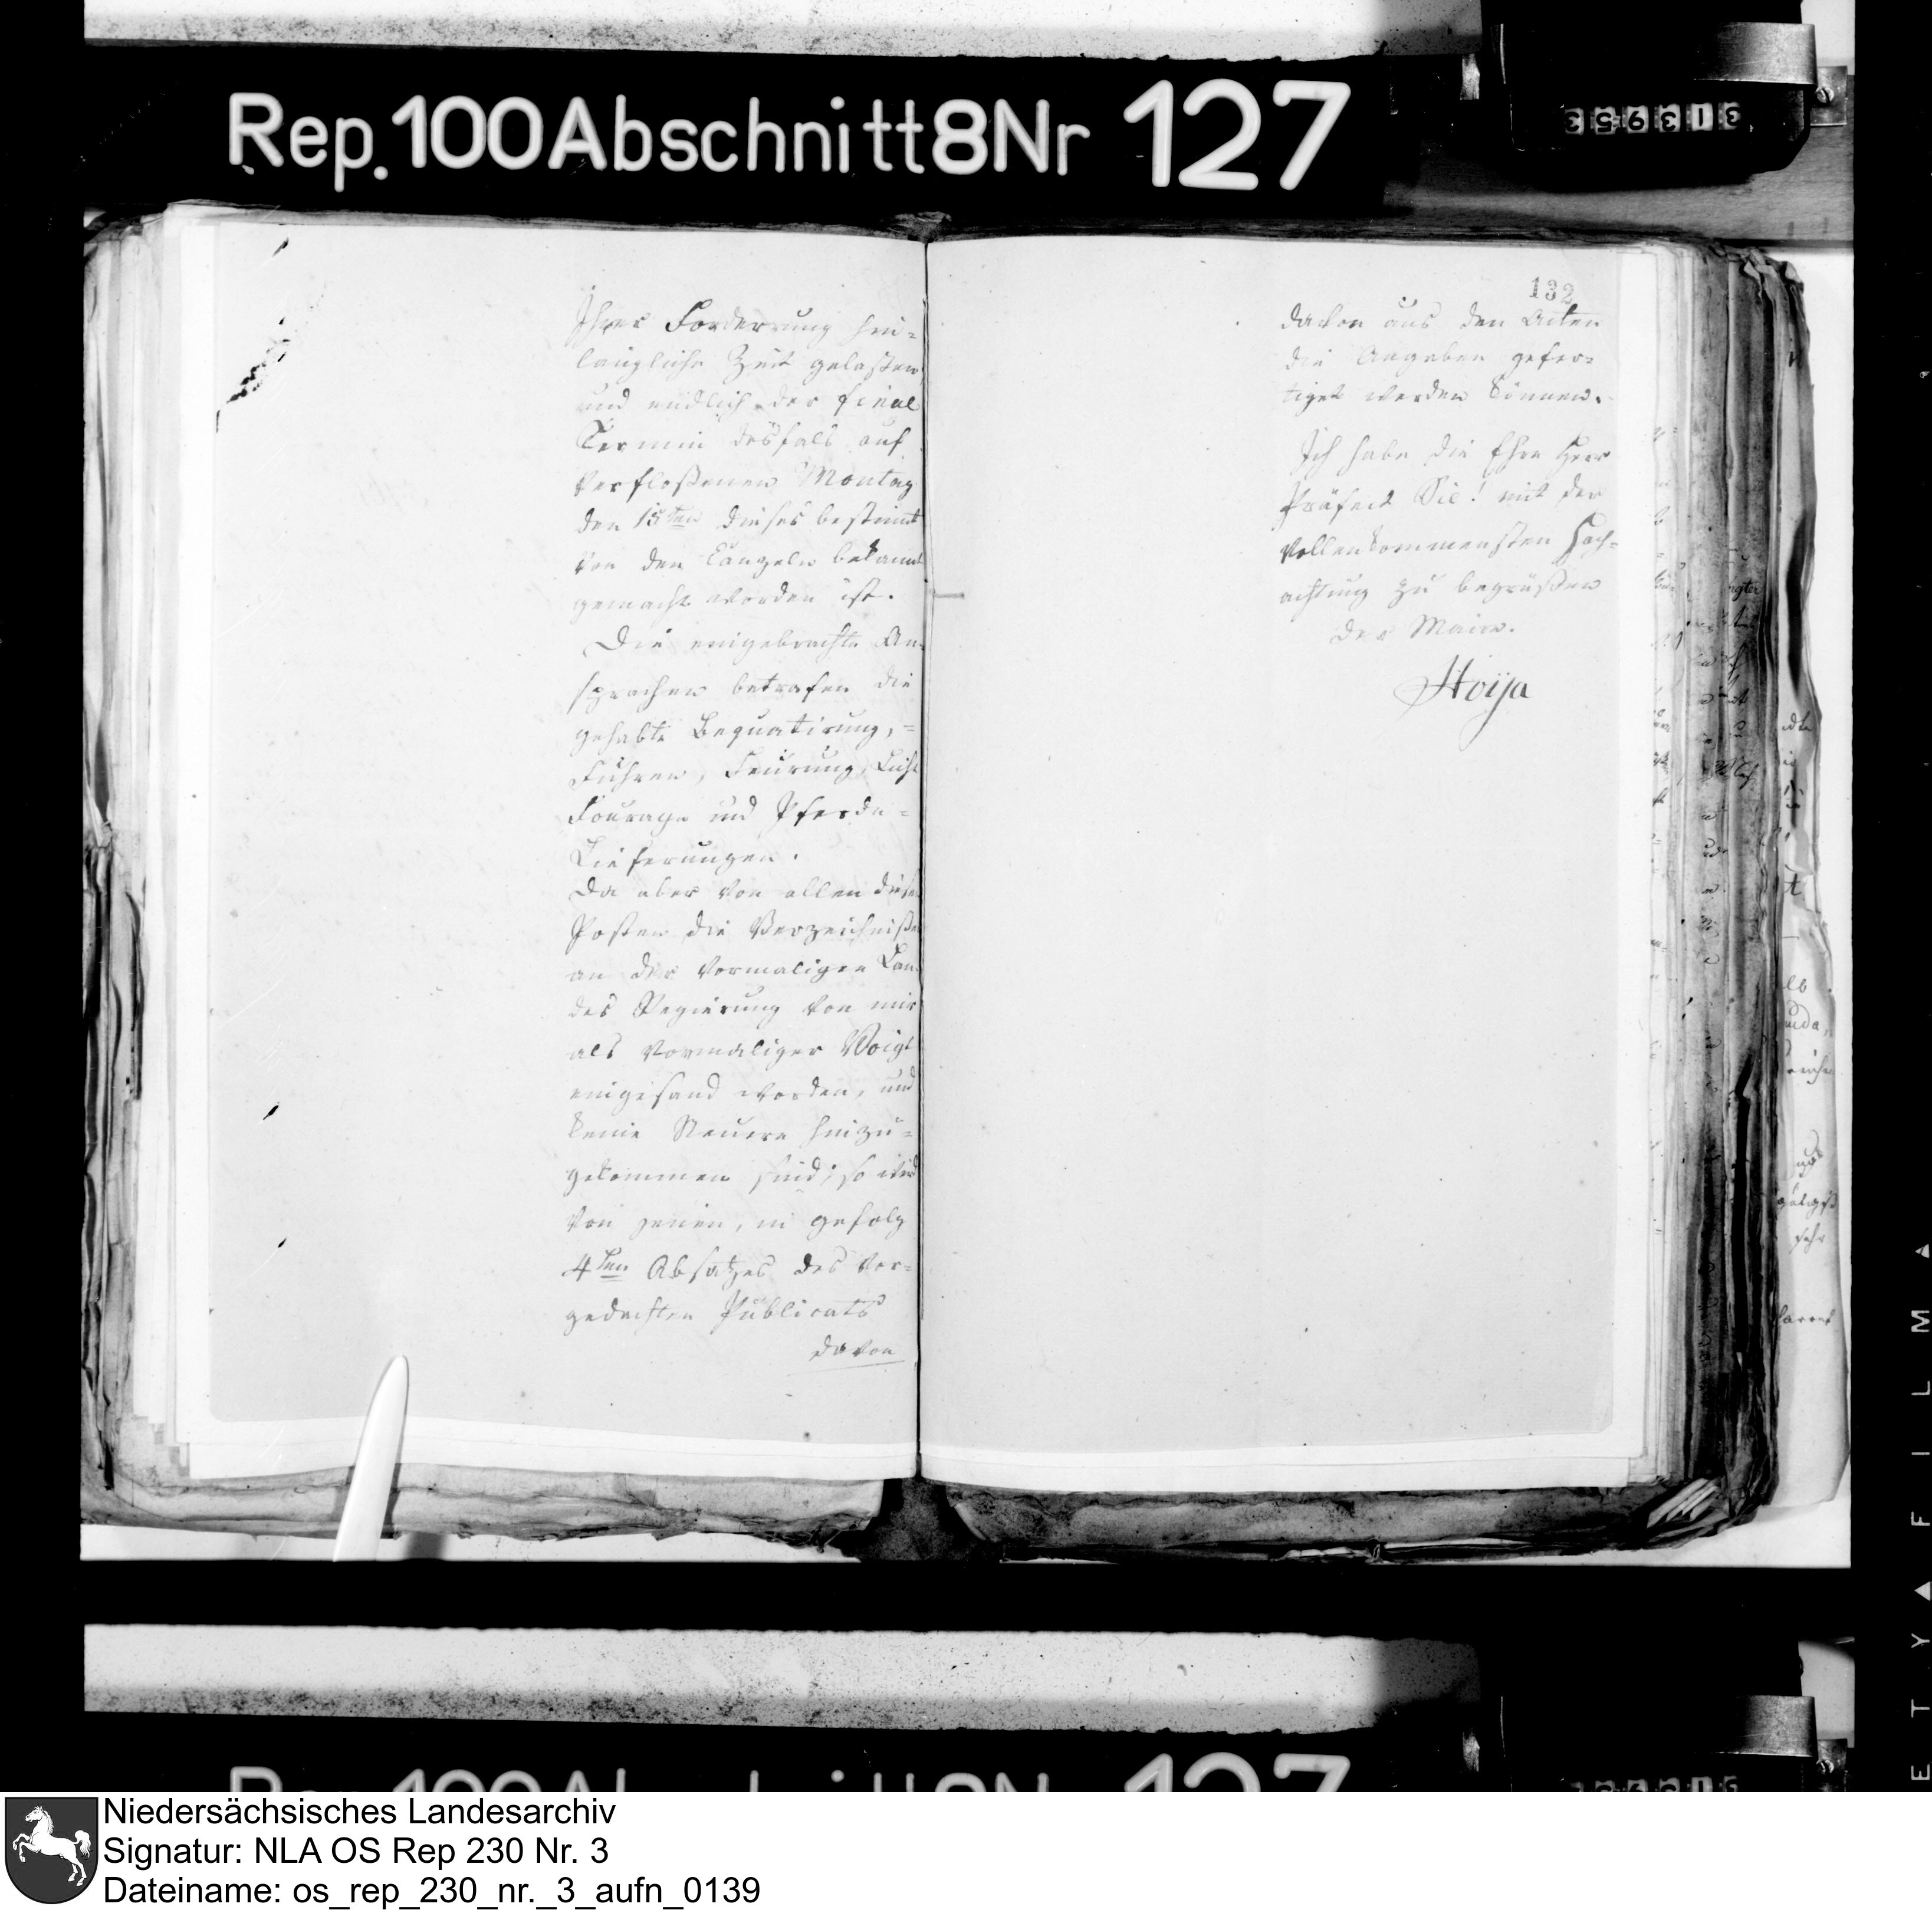 Rep. 100 Abschnitt 8 Nr 127
313953
Ihrer Forderung hin-
längliche Zeit gelaßen
und endlich der final
Termin desfals auf
verfloßenen Montag
den 15ten dieses bestimt
von den Canzeln bekannt
gemacht worden ist.
Die eingebrachte An-
sprachen betrafen die
gehabte Bequatirung,=
Fuhren, Feurung, Licht
Fourage und Pferde-
Lieferungen.
Da aber von allen diese
Posten die Verzeichniße
an der vormaligen Lan-
des Regierung von mir
als vormaliger Voigt
eingesand worden, und
keine Neuere hinzu-
gekommen sind; so wird
von jenen, in gefolg
4ten Absatzes des vor-
gedachten Publicats
davon
132
davon aus den Acten
die Angaben gefer-
tiget werden können.
Ich habe die Ehre Herr
Präfect Sie! mit der
vollenkommensten Hoch-
achtung zu begrüßen
der Maire.
Hoÿa
Niedersächsisches Landesarchiv
Signatur: NLA OS Rep 230 Nr. 3
Dateiname: os_rep_230_nr._3_aufn_0139